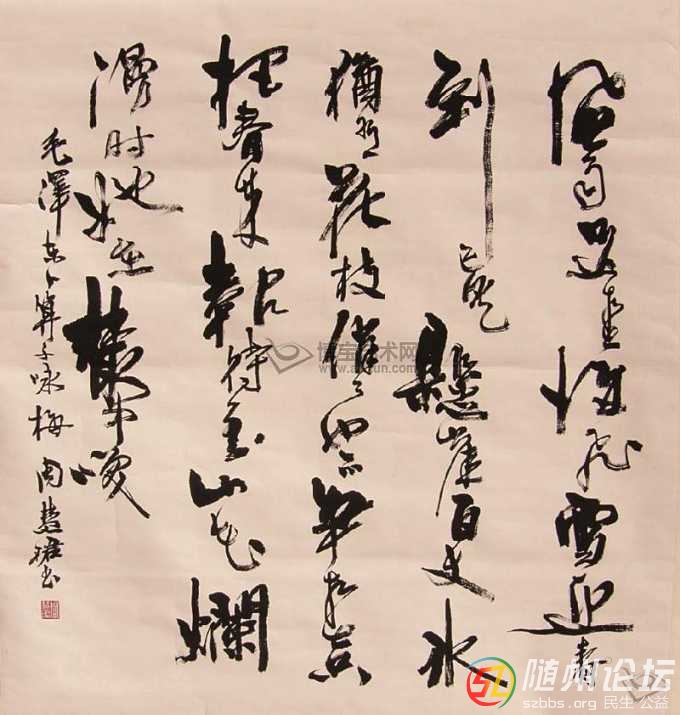 風雨送春归飛雪迎春
到已是懸崖百丈冰
猶有花枝俏々也不争春只
把春来報待到山花爛
漫时她在叢中笑
毛澤东卜算子咏梅 周慧珺书
博宝艺术网
随州论坛
szbbs.org 民生 公益